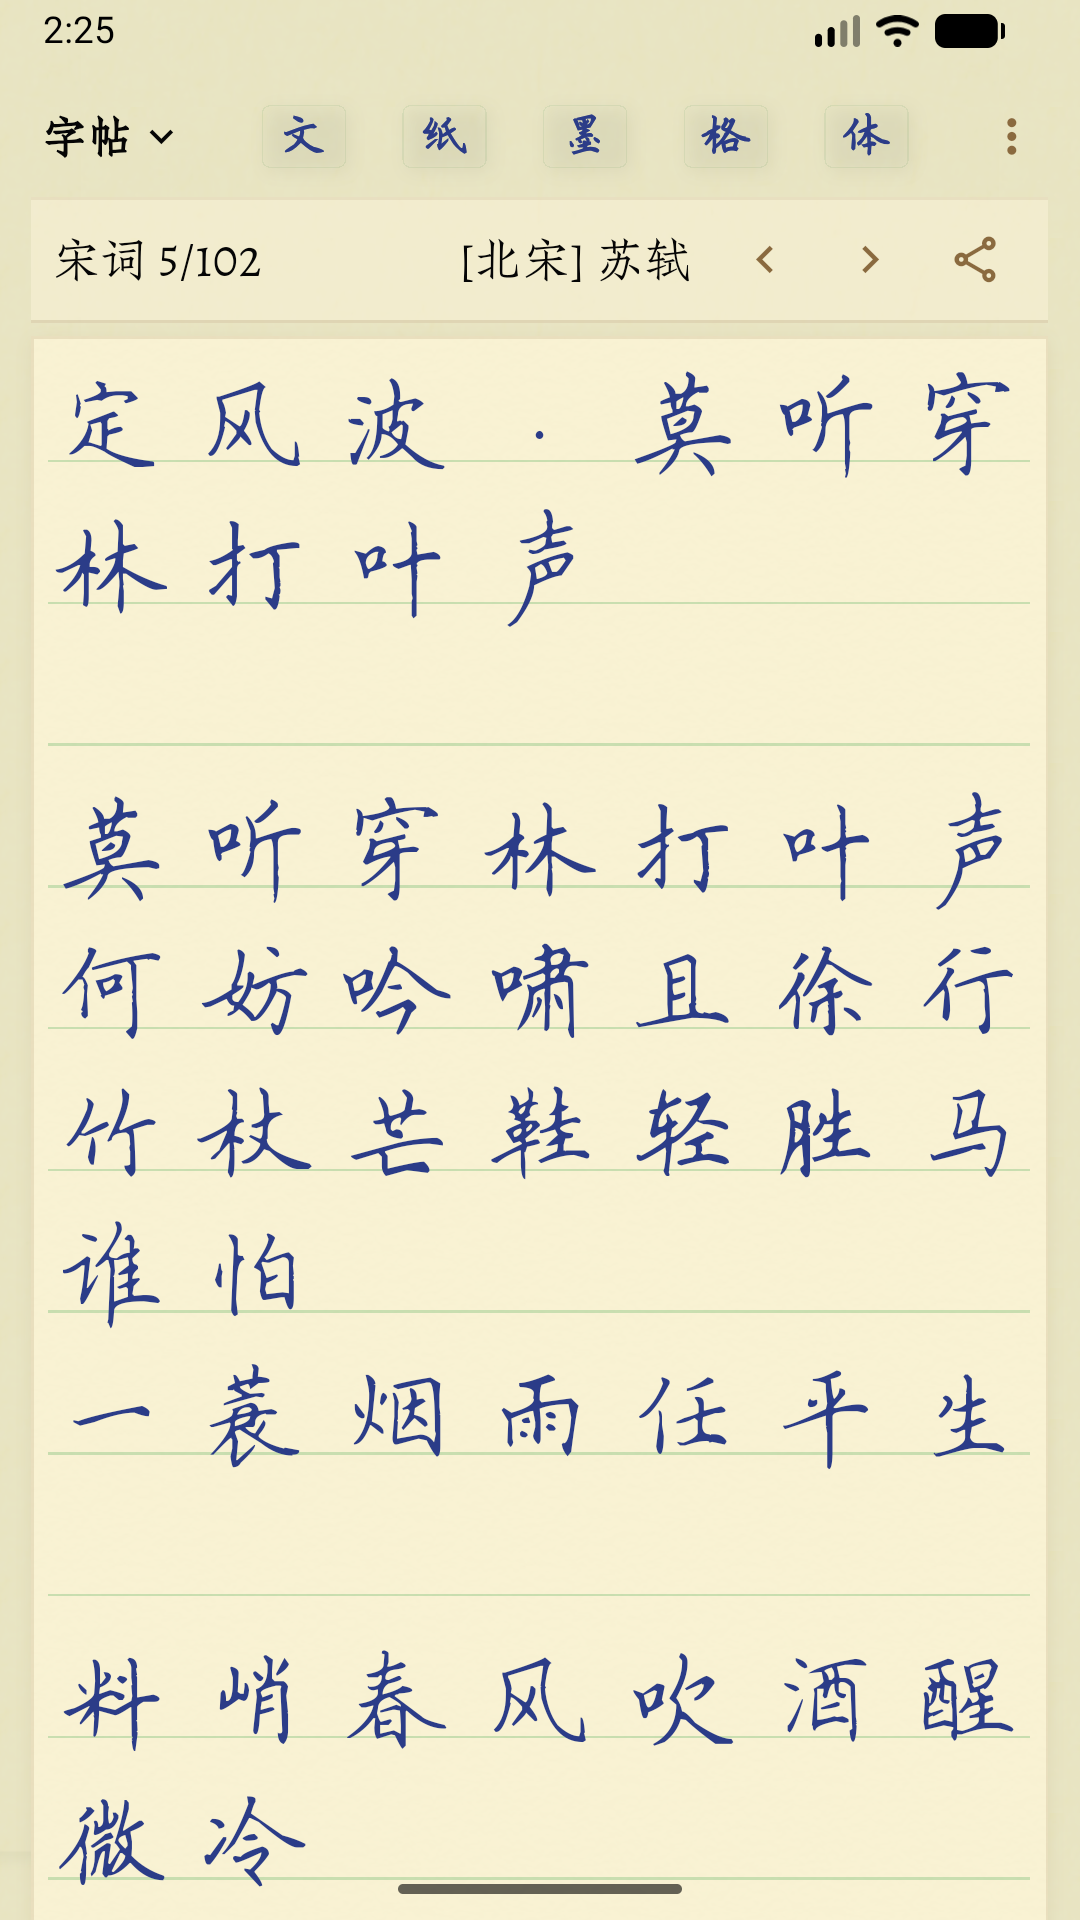 2:25
字帖 文 纸 墨 格 体
宋词 5/102 [北宋] 苏轼
定风波·莫听穿
林打叶声
莫听穿林打叶声
何妨吟啸且徐行
竹杖芒鞋轻胜马
谁怕
一蓑烟雨任平生
料峭春风吹酒醒
微冷